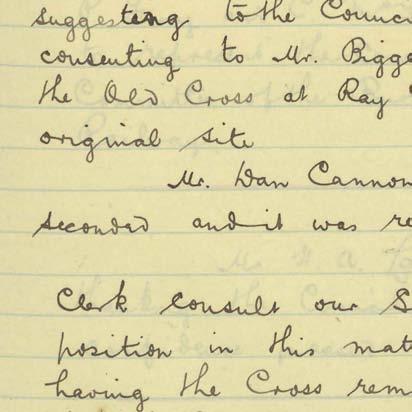 suggesting to the Counc
consenting to Mr. Bigge
the Old Cross at Ray
original site
Mr. Dan Cannon
seconded and it was re
Clerk consult our S
position in this mat
having the Cross rem